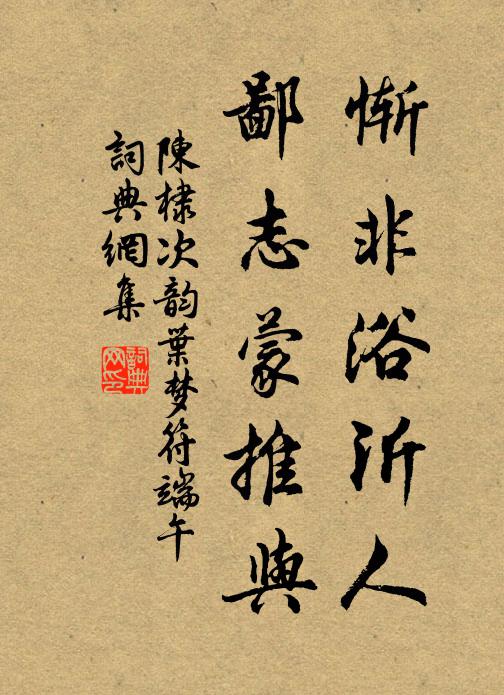 慚非浴沂人
鄙志蒙推與
陳棣次韵葉梦符端午
詞典網集
詞典
网印